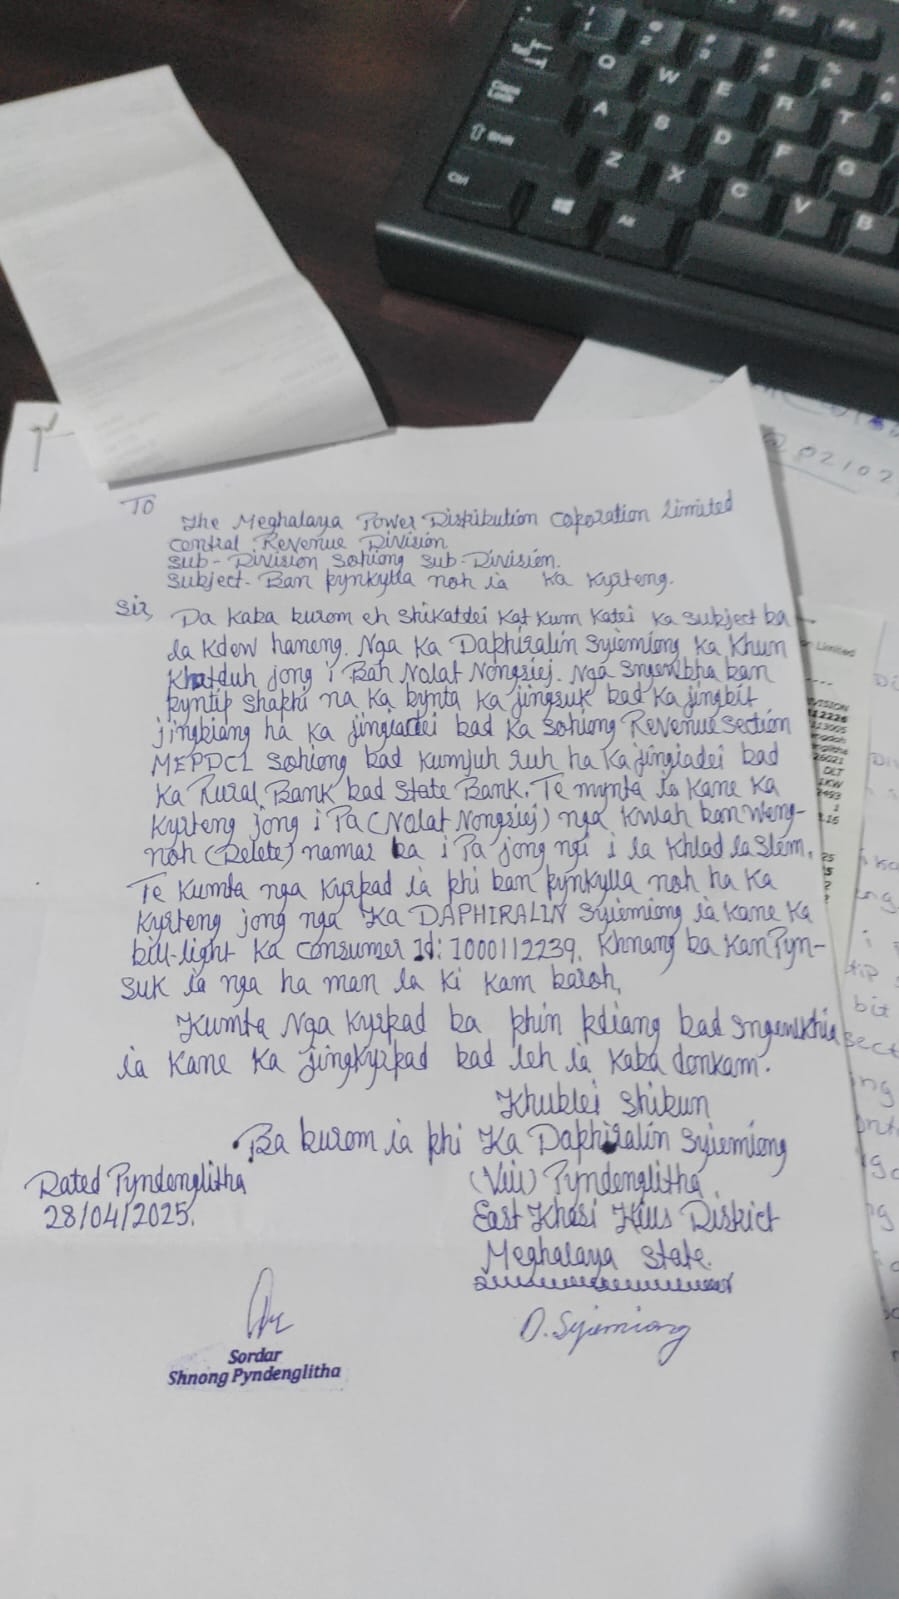 To
The Meghalaya Power Distribution Coporation Limited
Central Revenue Division
Sub-Division Sohiong Sub-Division.
Subject- Ban pynkylla noh ia ka kyrteng.
Sir, Da kaba burom eh shikatdei kat kum katei ka subject ba
la kdew haneng. Nga ka Daphiralin Syiemiong ka khun
khatduh jong i Bah Nolat Nongsiej. Nga sngewbha ban
pyntip shaphi na ka bynta ka jingsuk bad ka jingbit
jingbiang ha ka jingiadei bad ka Sohiong Revenue Section
MEPDCL Sohiong bad kumjuh ruh ha ka jingiadei bad
ka Rural Bank bad State Bank. Te mynta ia kane ka
kyrteng jong i Pa (Nolat Nongsiej) nga kwah ban weng-
noh (Delete) namar ba i Pa jong ngi i la khlad la slem.
Te kumta nga kyrpad ia phi ban pynkylla noh ha ka
kyrteng jong nga ka DAPHIRALIN Syiemiong ia kane ka
bill-light ka consumer Id: 1000112239. Khnang ba kan Pyn-
suk ia nga ha man la ki kam baroh.
Kumta Nga kyrpad ba phin pdiang bad sngewthia
ia kane ka jingkyrpad bad leh ia kaba donkam.
Khublei Shibun
Ba burom ia phi Ka Daphiralin Syiemiong
Dated Pyndenglitha
(Vill) Pyndenglitha
28/04/2025.
East Khasi Hills District
Meghalaya State.
D. Syiemiong
Sordar
Shnong Pyndenglitha